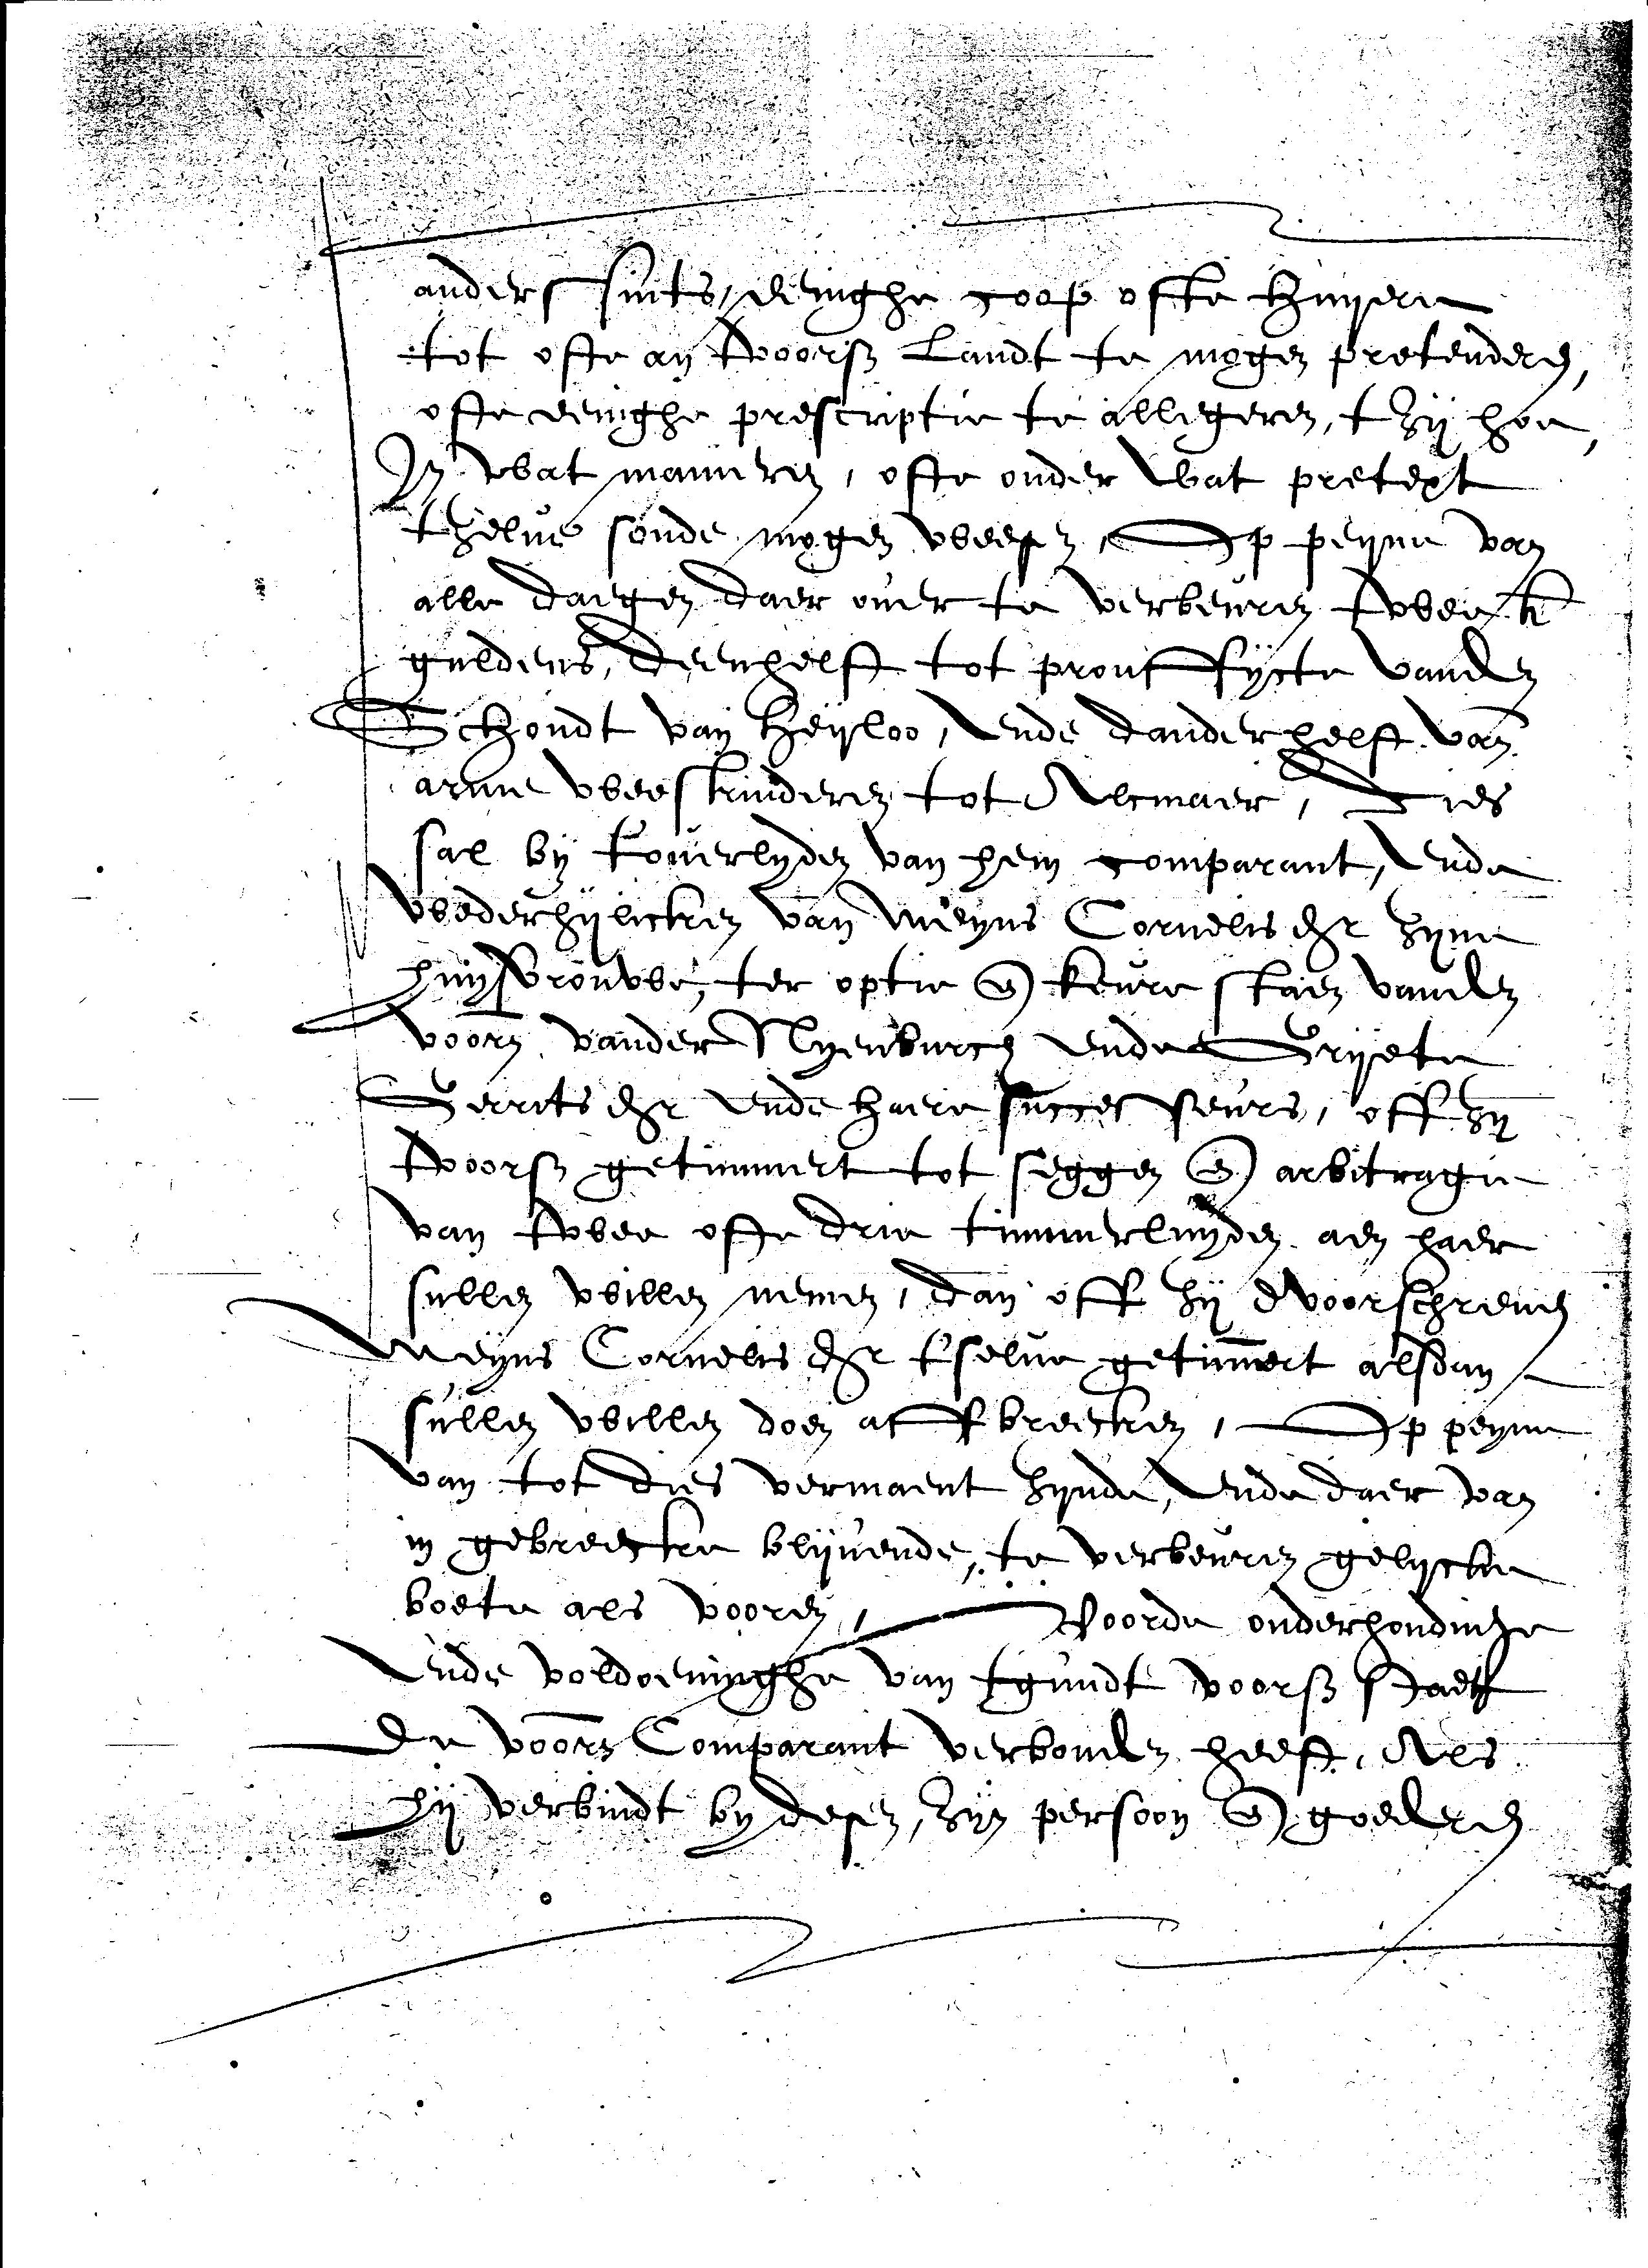 anderssints, eenighe coop ofte huyere
tot ofte an tvoorsz Landt te mogen pretenderen,
ofte eenighe prescriptie te allegeren, t zij hoe,
In wat manieren, ofte onder wat pretext
tzelve soude mogen wesen, Op peyne van
alle daegen daer over te verbeuren twee k
guldens, deenhelft tot prouffycte vanden
Schoudt van Heyloo, Ende dander helft van
arme weeskinderen tot Alcmaer, Dies
sal by toverlyden van hem comparant, Ende
wederhylicken van Meyns Cornelis dr zyne
huysvrouwe, ter optie en keure staen vanden
voorn vander Nyenburch ende Gryete
Gerrits dr ende haere successeurs, off zy
tvoorsz getimmert tot seggen en arbitragie
van twee ofte drie timmerluyden aen haer
sullen willen nemen, dan off zij dvoorschreven
Meyns Cornelis dr t'selve getimmert alsdan
sullen willen doen affbreecken, Op peyne
van tot dies vermaent zynde, Ende daer van
in gebreecke blyvende, te verbeuren gelycke
boete als vooren, Voorde onderhoudinge
Ende voldoeninghe van tgundt voorsz staet
De voorn Comparant verbonden heeft, Als
hij verbindt by desen, zyn persoon en goederen